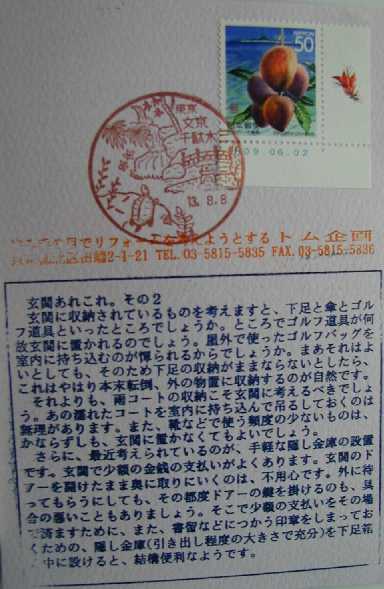 NIPPON
50
東京
文京
千駄木
13. 8. 8
09 06.02
でリフォームを考えようとするトム企画
区田端2-1-21 TEL. 03-5815-5835 FAX. 03-5815-5836
玄関あれこれ。その2
玄関に収納されているものを考えますと、下足と傘とゴル
フ道具といったところでしょうか。ところでゴルフ道具が何
故玄関に置かれるのでしょう。屋外で使ったゴルフバッグを
室内に持ち込むのが憚られるからでしょうか。まあそれはよ
いとしても、そのため下足の収納がままならないとしたら、
これはやはり本末転倒、外の物置に収納するのが自然です。
それよりも、雨コートの収納こそ玄関に考えるべきでしょ
う。あの濡れたコートを室内に持ち込んで吊るしておくのは
無理があります。また、靴などで使う頻度の少ないものは、
かならずしも、玄関に置かなくてもよいでしょう。
さらに、最近考えられているのが、手軽な隠し金庫の設置
です。玄関で少額の金銭の支払いがよくあります。玄関のド
アーを開けたまま奥に取りにいくのは、不用心です。外に待
ってもらうにしても、その都度ドアーの鍵を掛けるのも、具
合の悪いこともありましょう。そこで少額の支払いをその場
で済ますために、また、書留などにつかう印章をしまってお
くための、隠し金庫(引き出し程度の大きさで充分)を下足箱
中に設けると、結構便利なようです。